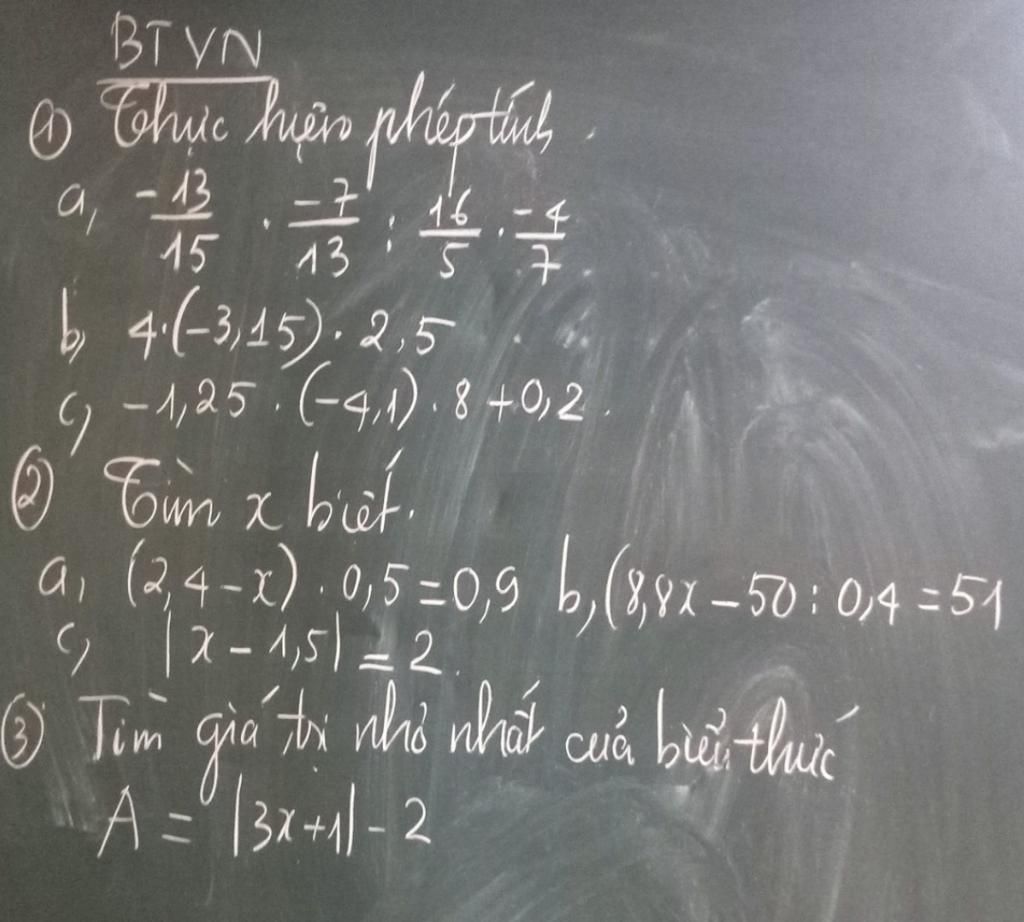 BTVN
① Thực hiện phép tính.
a, -13/15 · -7/13 : 16/5 · -4/7
b, 4·(-3,15)·2,5
c, -1,25·(-4,1)·8+0,2.
② Tìm x biết.
a, (2,4-x)·0,5=0,9 b, (8,8x-50:0,4=51
c, |x-1,5|=2.
③ Tìm giá trị nhỏ nhất cuả biểu thức
A = |3x+1|-2